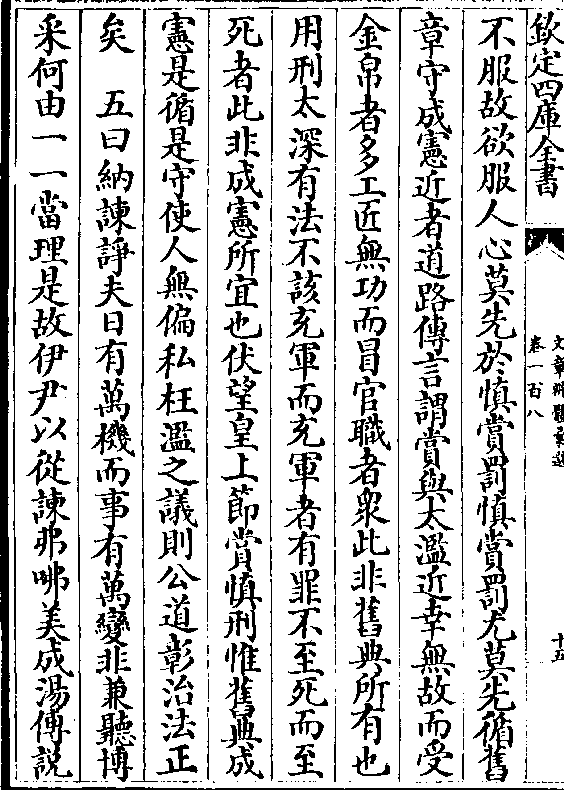 欽定四庫全書
文章辨體彙選
卷一百八
十五
不服故欲服人心莫先於慎賞罰慎賞罰尤莫先循舊
章守成憲近者道路傳言謂賞與太濫近幸無故而受
金帛者多工匠無功而冒官職者衆此非舊典所有也
用刑太深有法不該充軍而充軍者有罪不至死而至
死者此非成憲所宜也伏望皇上節賞慎刑惟舊典成
憲是循是守使人無偏私枉濫之議則公道彰治法正
矣　五曰納諫諍夫日有萬機而事有萬變非兼聽博
采何由一一當理是故伊尹以從諫弗咈美成湯傅説